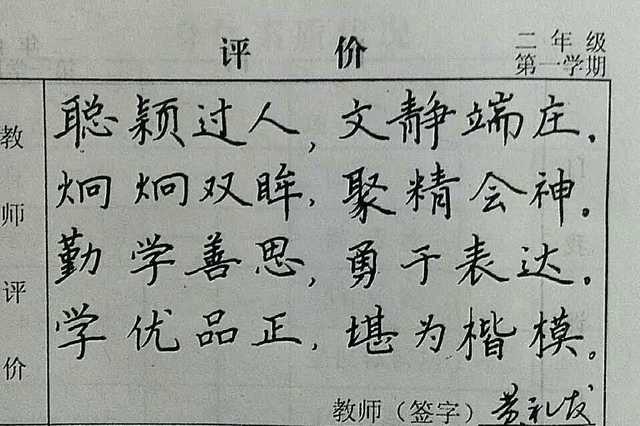 评价
二年级
第一学期
教师评价
聪颖过人,文静端庄.
炯炯双眸,聚精会神。
勤学善思,勇于表达。
学优品正,堪为楷模。
教师（签字）黄礼发